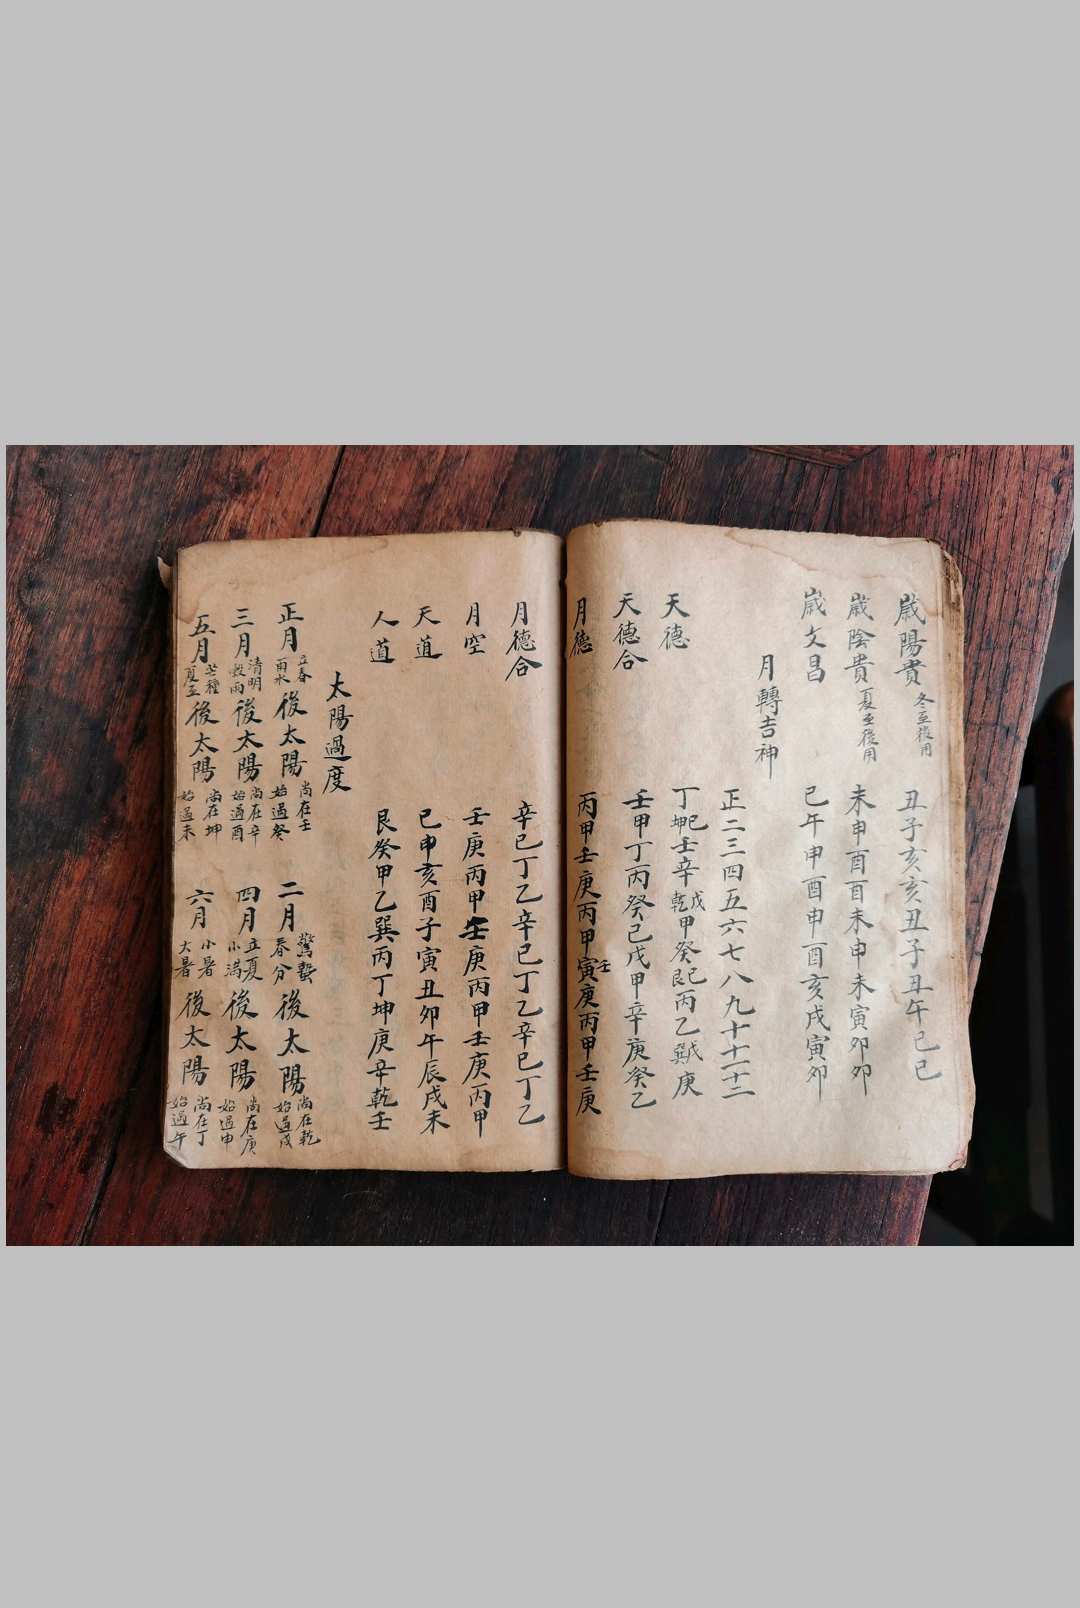 歲陽貴 冬至後用 丑子亥亥丑子丑午巳巳
歲陰貴 夏至後用 未申酉酉未申未寅卯卯
歲文昌 巳午申酉申酉亥戌寅卯
月轉吉神
正二三四五六七八九十十一十二
天德 丁坤巳壬辛乾戊甲癸艮巳丙乙巽戌庚
天德合 壬甲丁丙癸己戊甲辛庚癸乙
月德 丙甲壬庚丙甲寅壬庚丙甲壬庚
月德合 辛巳丁乙辛巳丁乙辛巳丁乙
月空 壬庚丙甲壬庚丙甲壬庚丙甲
天道 巳申亥酉子寅丑卯午辰戌未
人道 艮癸甲乙巽丙丁坤庚辛乾壬
太陽過度
正月 立春 雨水 後太陽 尚在壬 始過癸 二月 驚蟄 春分 後太陽 尚在乾 始過戌
三月 清明 穀雨 後太陽 尚在辛 始過酉 四月 立夏 小滿 後太陽 尚在庚 始過申
五月 芒種 夏至 後太陽 尚在坤 始過未 六月 小暑 大暑 後太陽 尚在丁 始過午